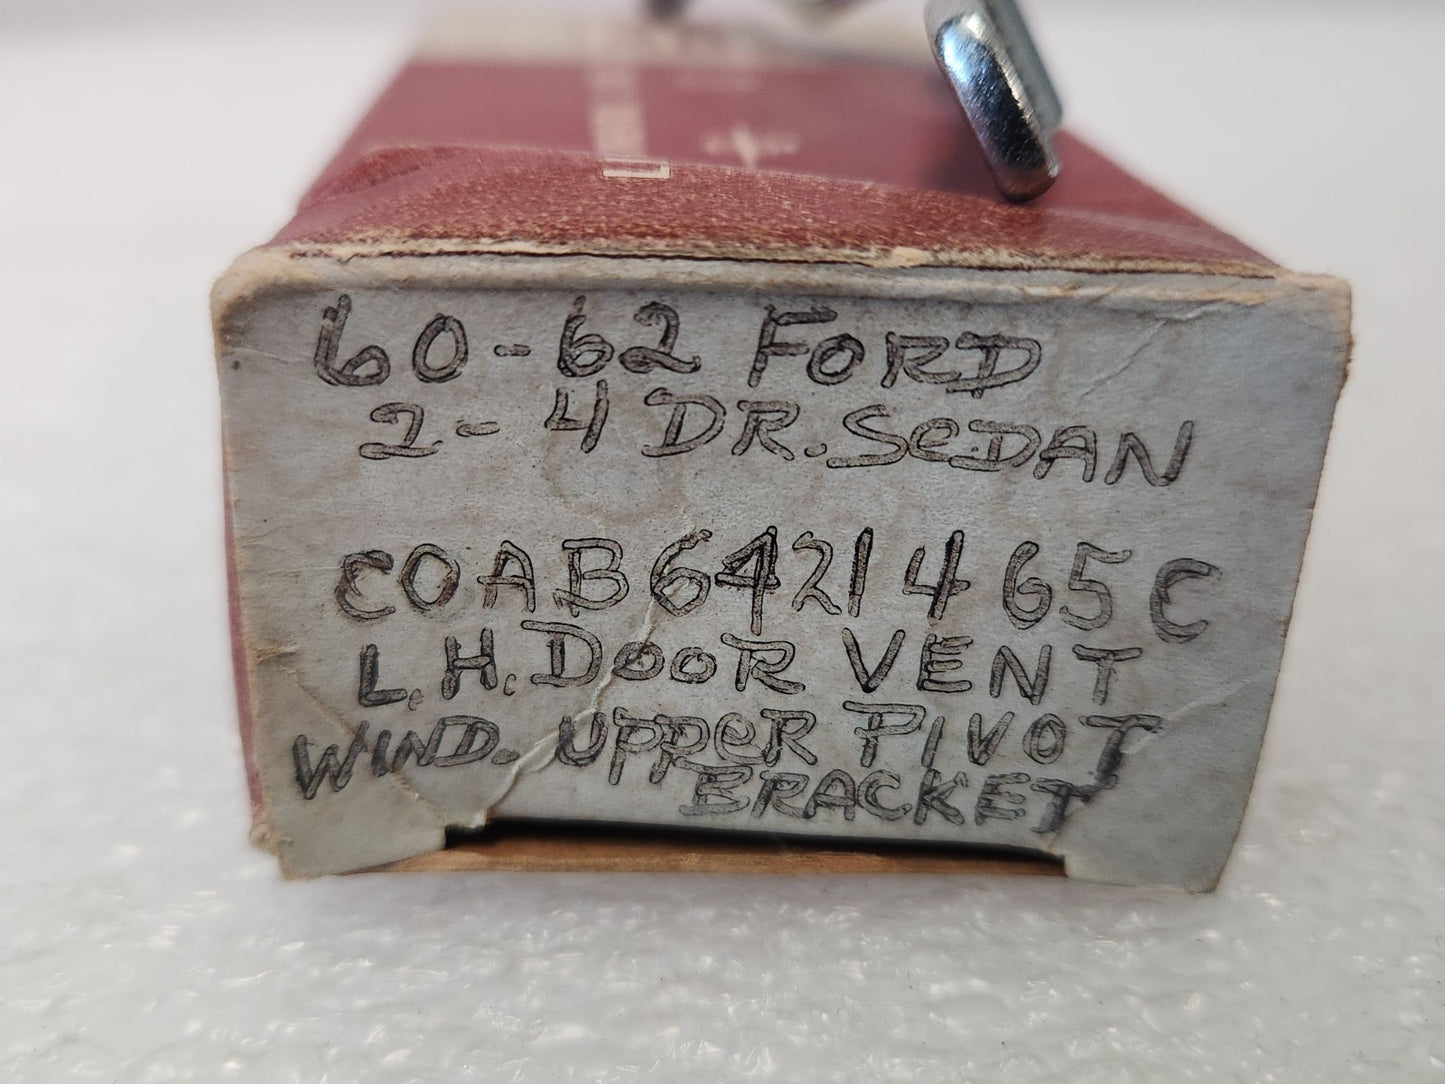 60-62 FORD
2-4 DR. SeDAN
COAB6421465C
L.H. DOOR VENT
WIND. UPPeR PIVOT
BRACKET